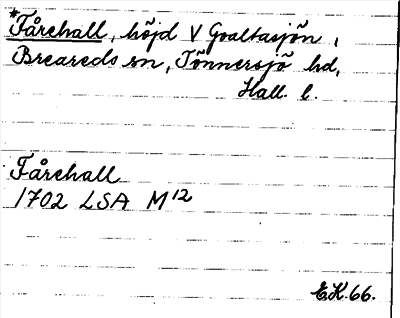 *Fårehall, höjd V Goaltasjön,
Breareds sn, Tönnersjö hd,
Hall. l.
Fårehall
1702 LSA M12
E.K. 66.